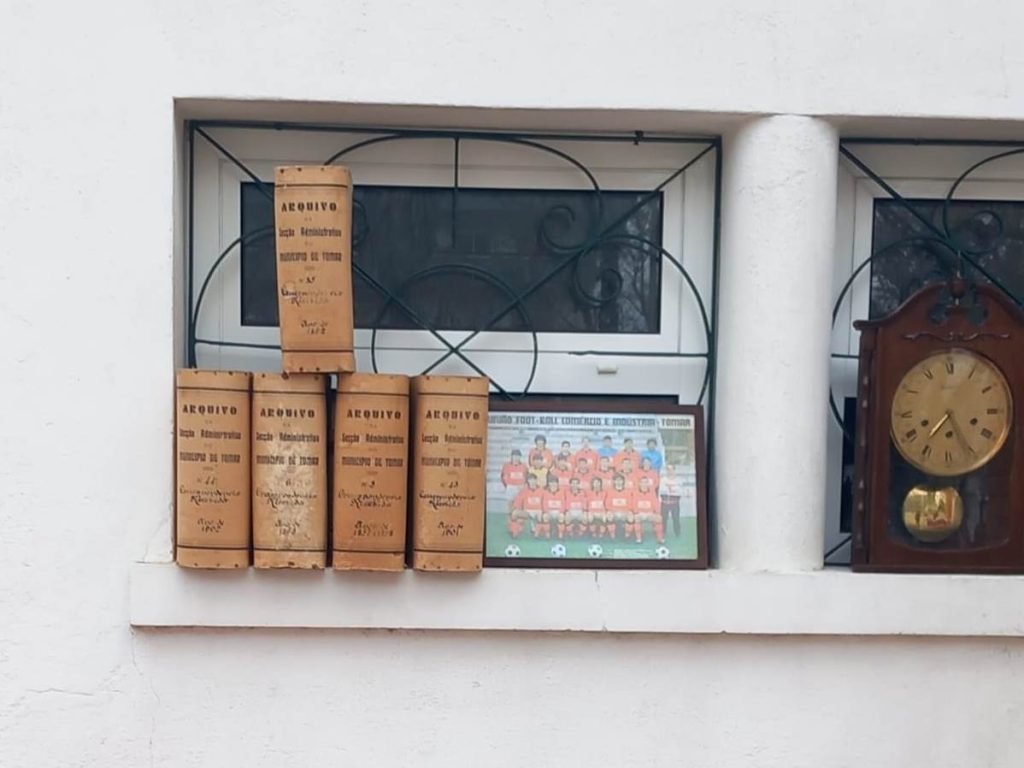 ARQUIVO
DA
Secção Administrativa
DO
MUNICIPIO DE TOMAR
Correspondencia
Recebida
Anno de
ARQUIVO
DA
Secção Administrativa
DO
MUNICIPIO DE TOMAR
Nº 44
Correspondencia
Recebida
Anno de
1902
ARQUIVO
DA
Secção Administrativa
DO
MUNICIPIO DE TOMAR
6
Correspondencia
Recebida
ARQUIVO
DA
Secção Administrativa
DO
MUNICIPIO DE TOMAR
Nº 3
Correspondencia
Recebida
ARQUIVO
DA
Secção Administrativa
DO
MUNICIPIO DE TOMAR
Nº 43
Correspondencia
Recebida
Anno de
1901
UNIÃO FOOT-BALL COMÉRCIO E INDÚSTRIA - TOMAR